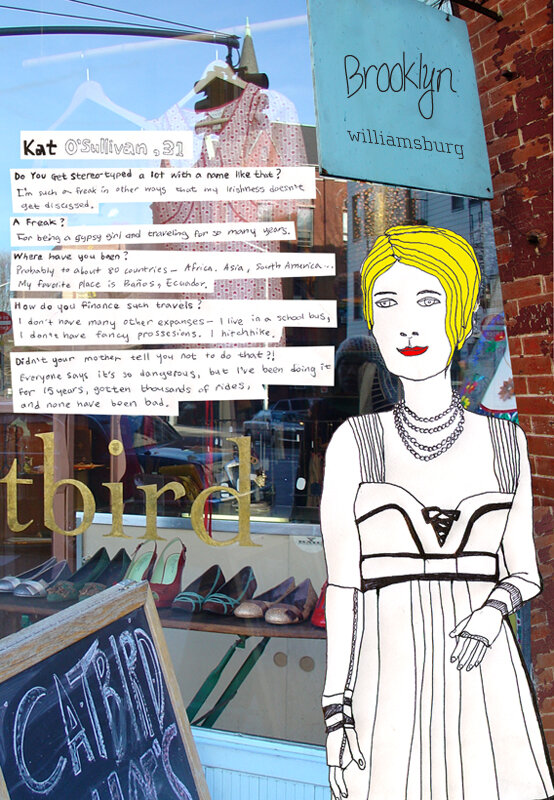 Brooklyn
williamsburg
Kat O'Sullivan,
Do You get stereotyped a lot with a name like that?
I'm such a freak in other ways that my Irishness doesn't
get discussed.
A Freak?
For being a gypsy girl and traveling for so many years.
Where have you been?
Probably to about 80 countries – Africa. Asia, South America...
My favorite place is Baños, Ecuador.
How do you finance such travels?
I don't have many other expanses – I live in a school bus,
I don't have fancy prossesions. I hitchhike.
Didn't your mother tell you not to do that?!
Everyone says it's so dangerous, but I've been doing it
for 15 years, gotten thousands of rides,
and none have been bad.
tbird
CATBIRD